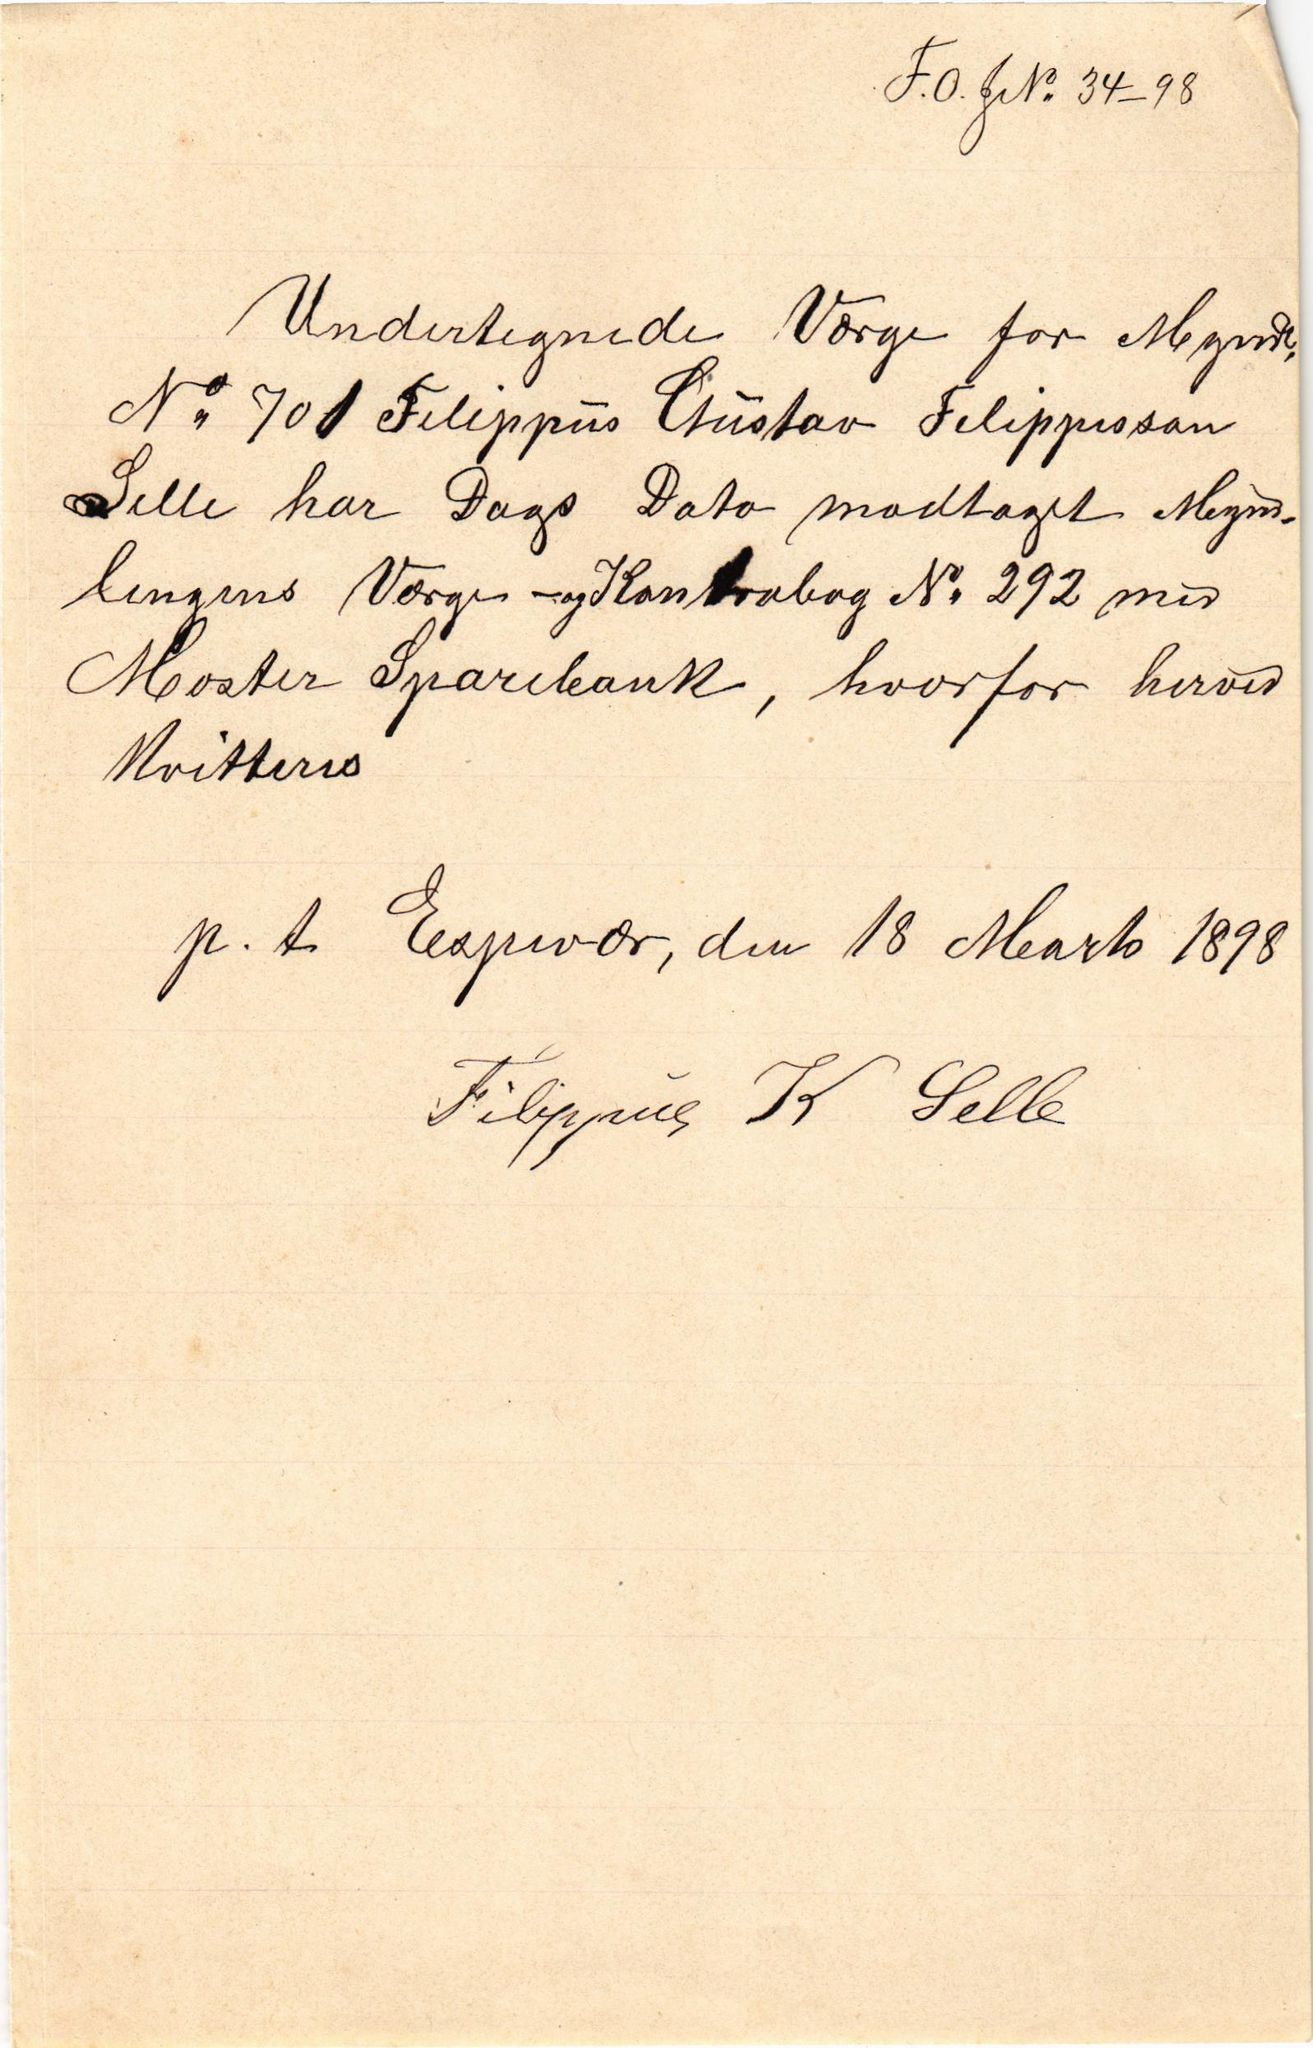 F.O. J No. 34-98
Undertegnede Værge for Myndl,
No. 701 Filippus Gustav Filippusson
Selle har Dags Dato modtaget Mynd-
lingens Værge- og Kontrabog No. 292 med
Moster Sparebank, hvorfor herved
kvitteres
p. t Espevær, den 18 Marts 1898
Filippus K Selle